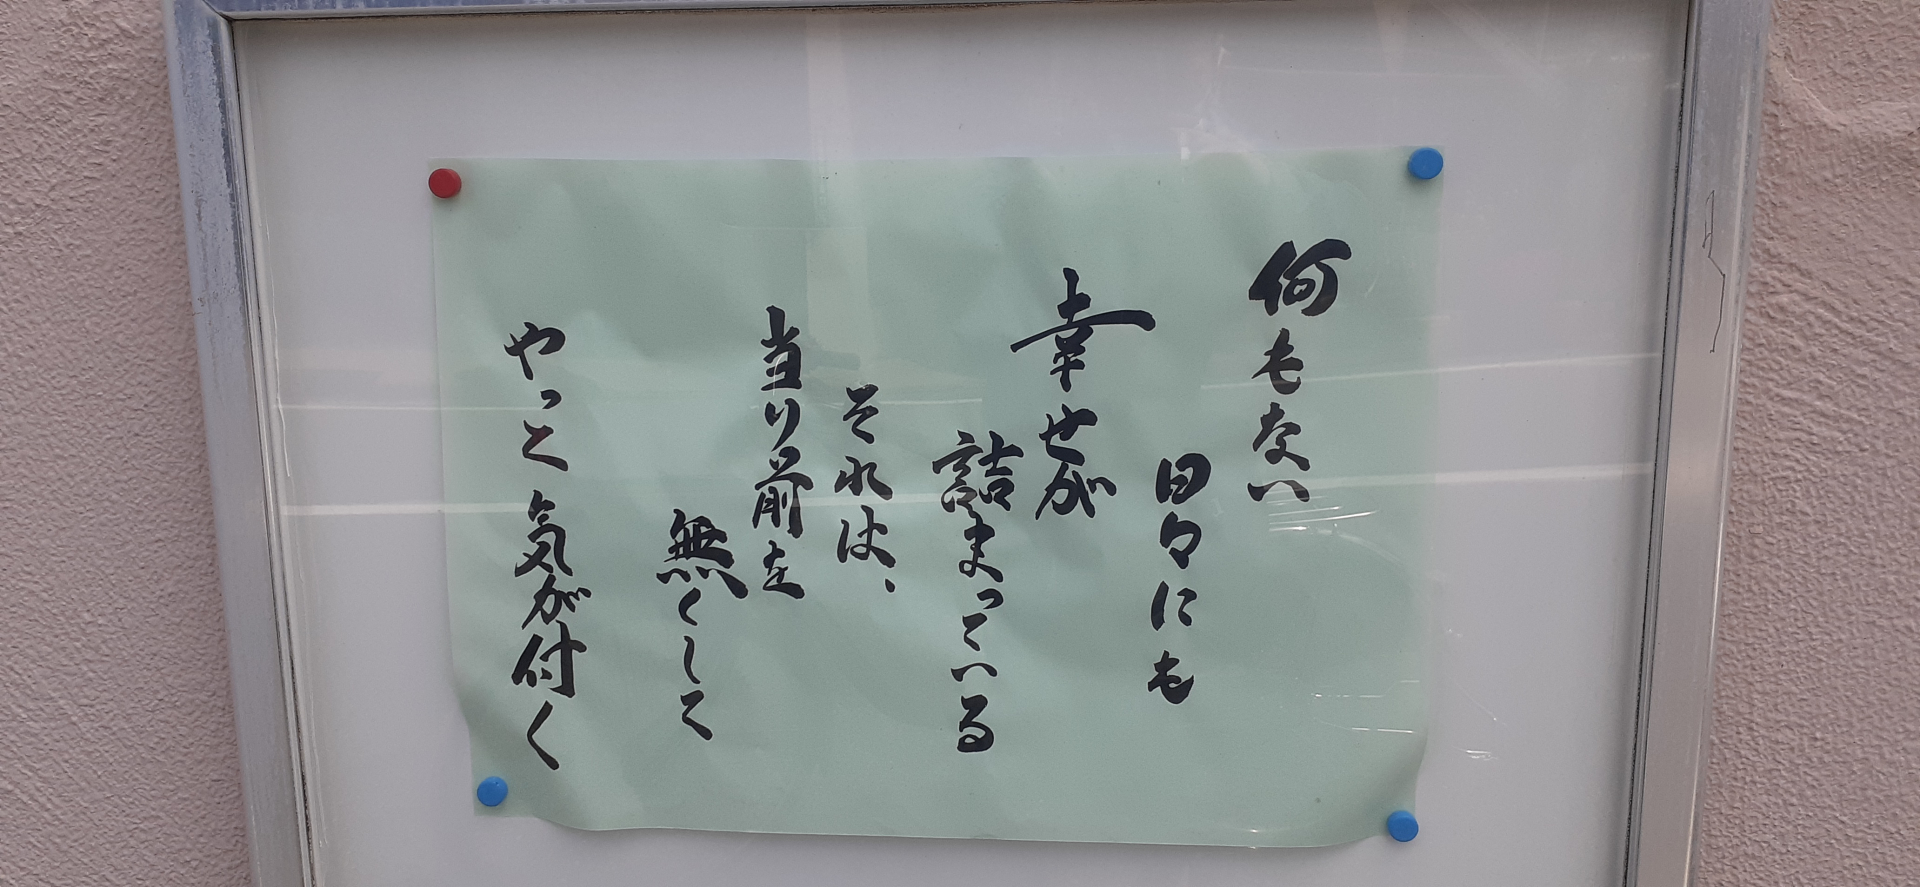 何もない
日々にも
幸せが
詰まっている
それは、
当り前を
無くして
やっと気が付く